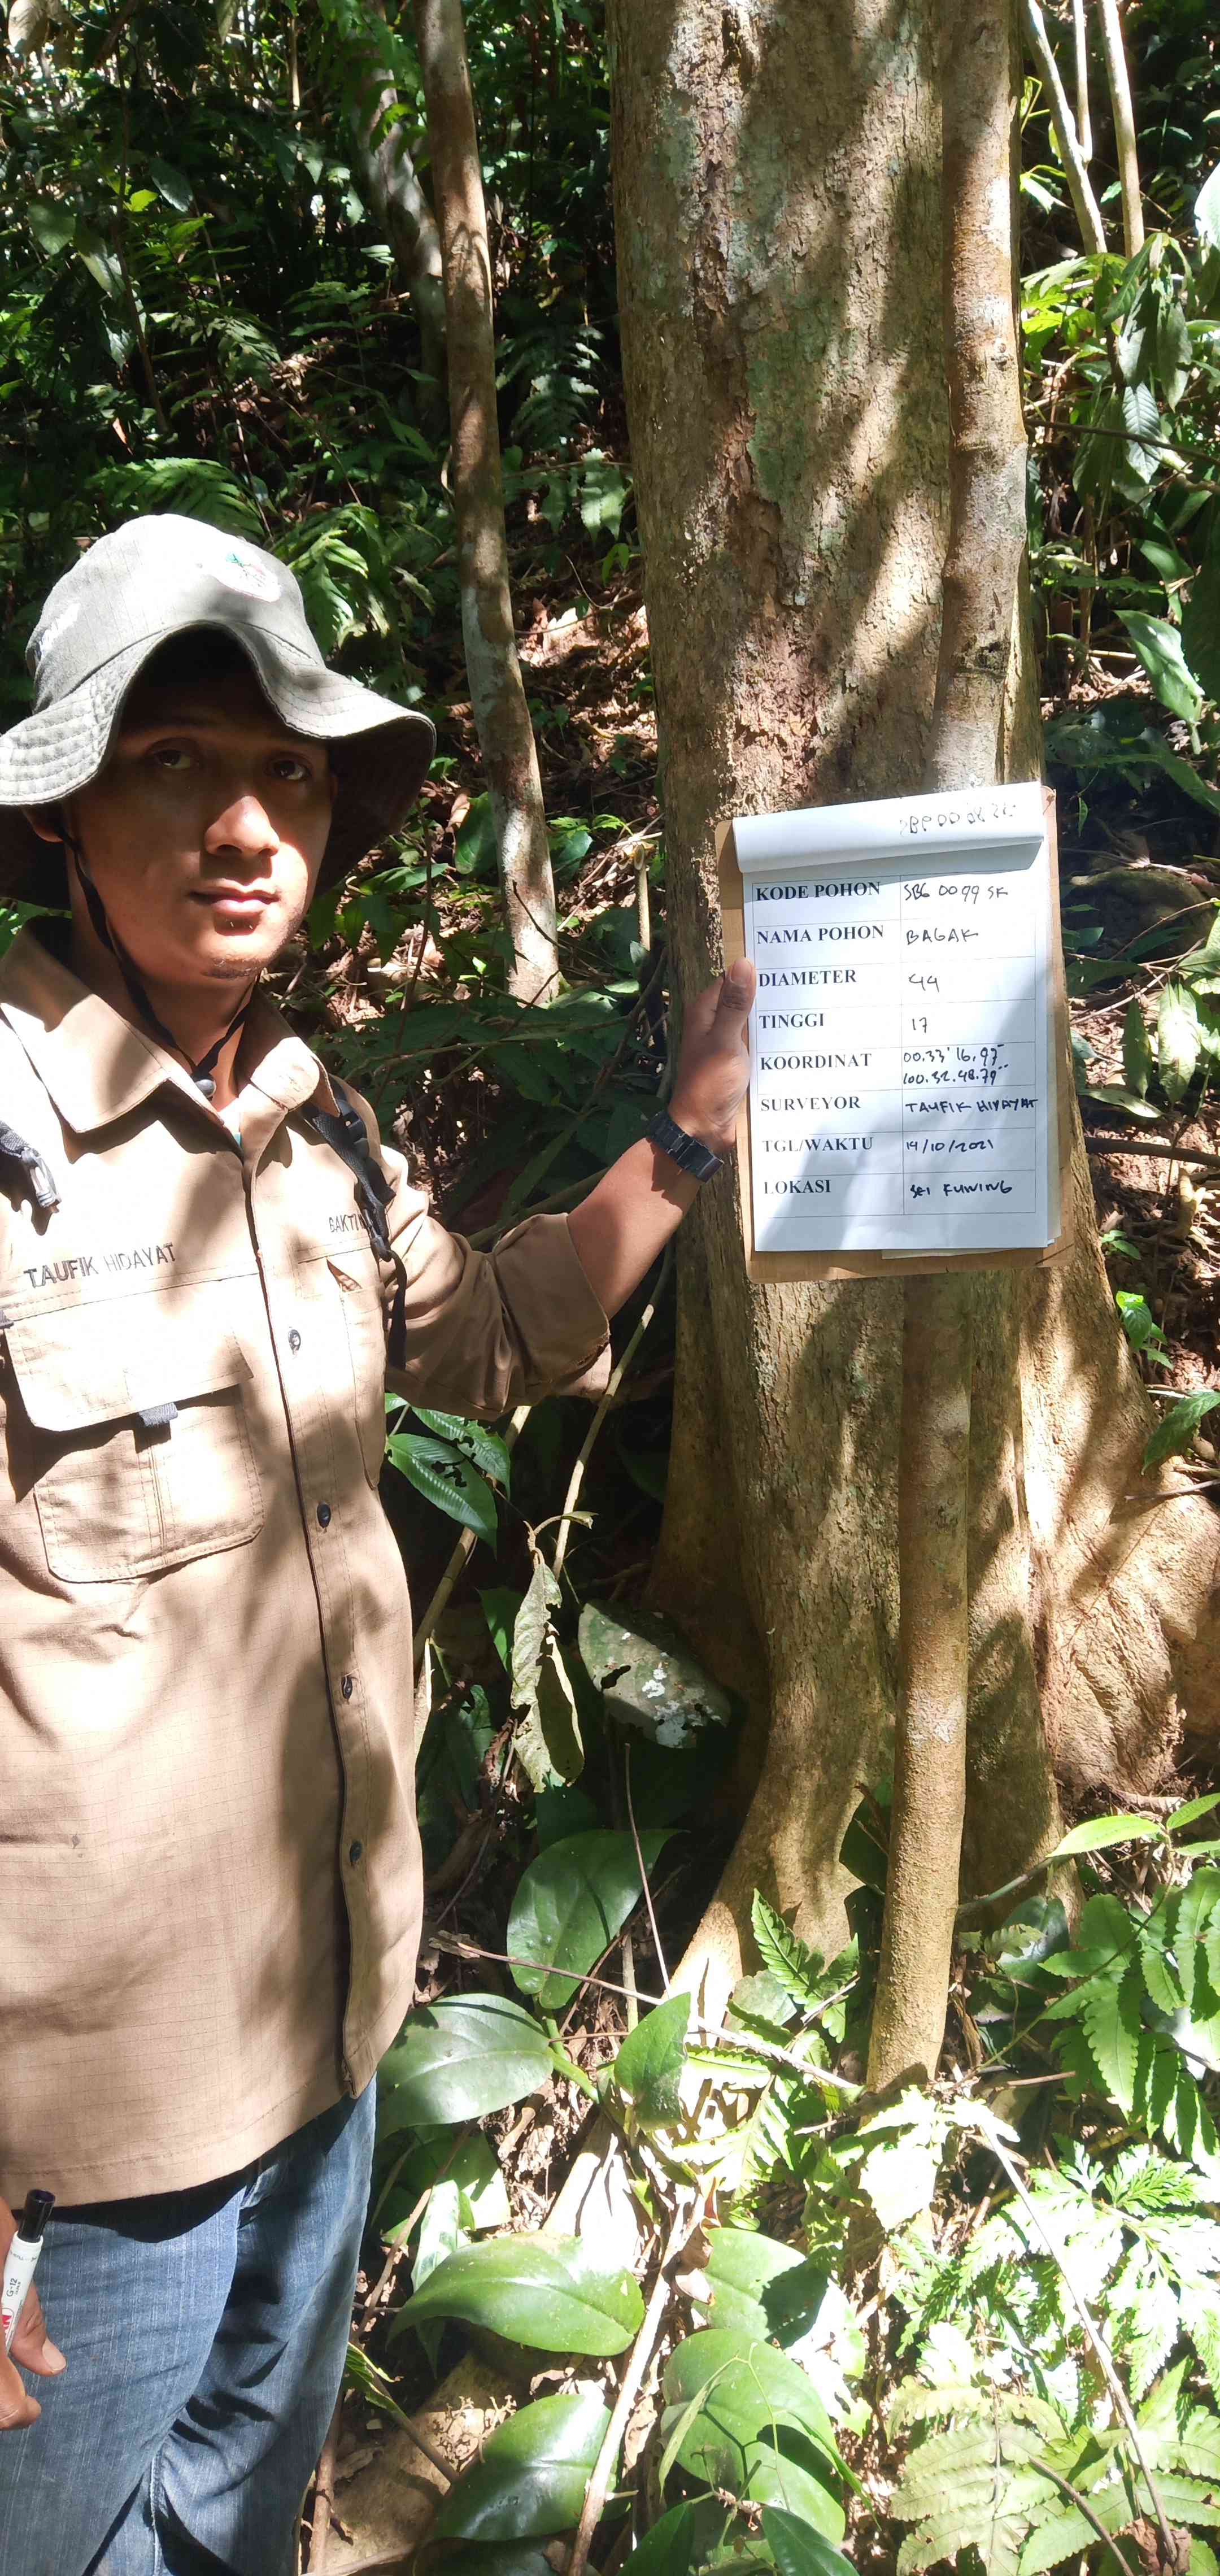 KODE POHON SBG 0099 SK
NAMA POHON BAGAK
DIAMETER 44
TINGGI 17
KOORDINAT 00.33'16.97"
100.32.48.79"
SURVEYOR TAUFIK HIDAYAT
TGL/WAKTU 14/10/2021
LOKASI SEI KUNING
TAUFIK HIDAYAT
BAKTI
G-12